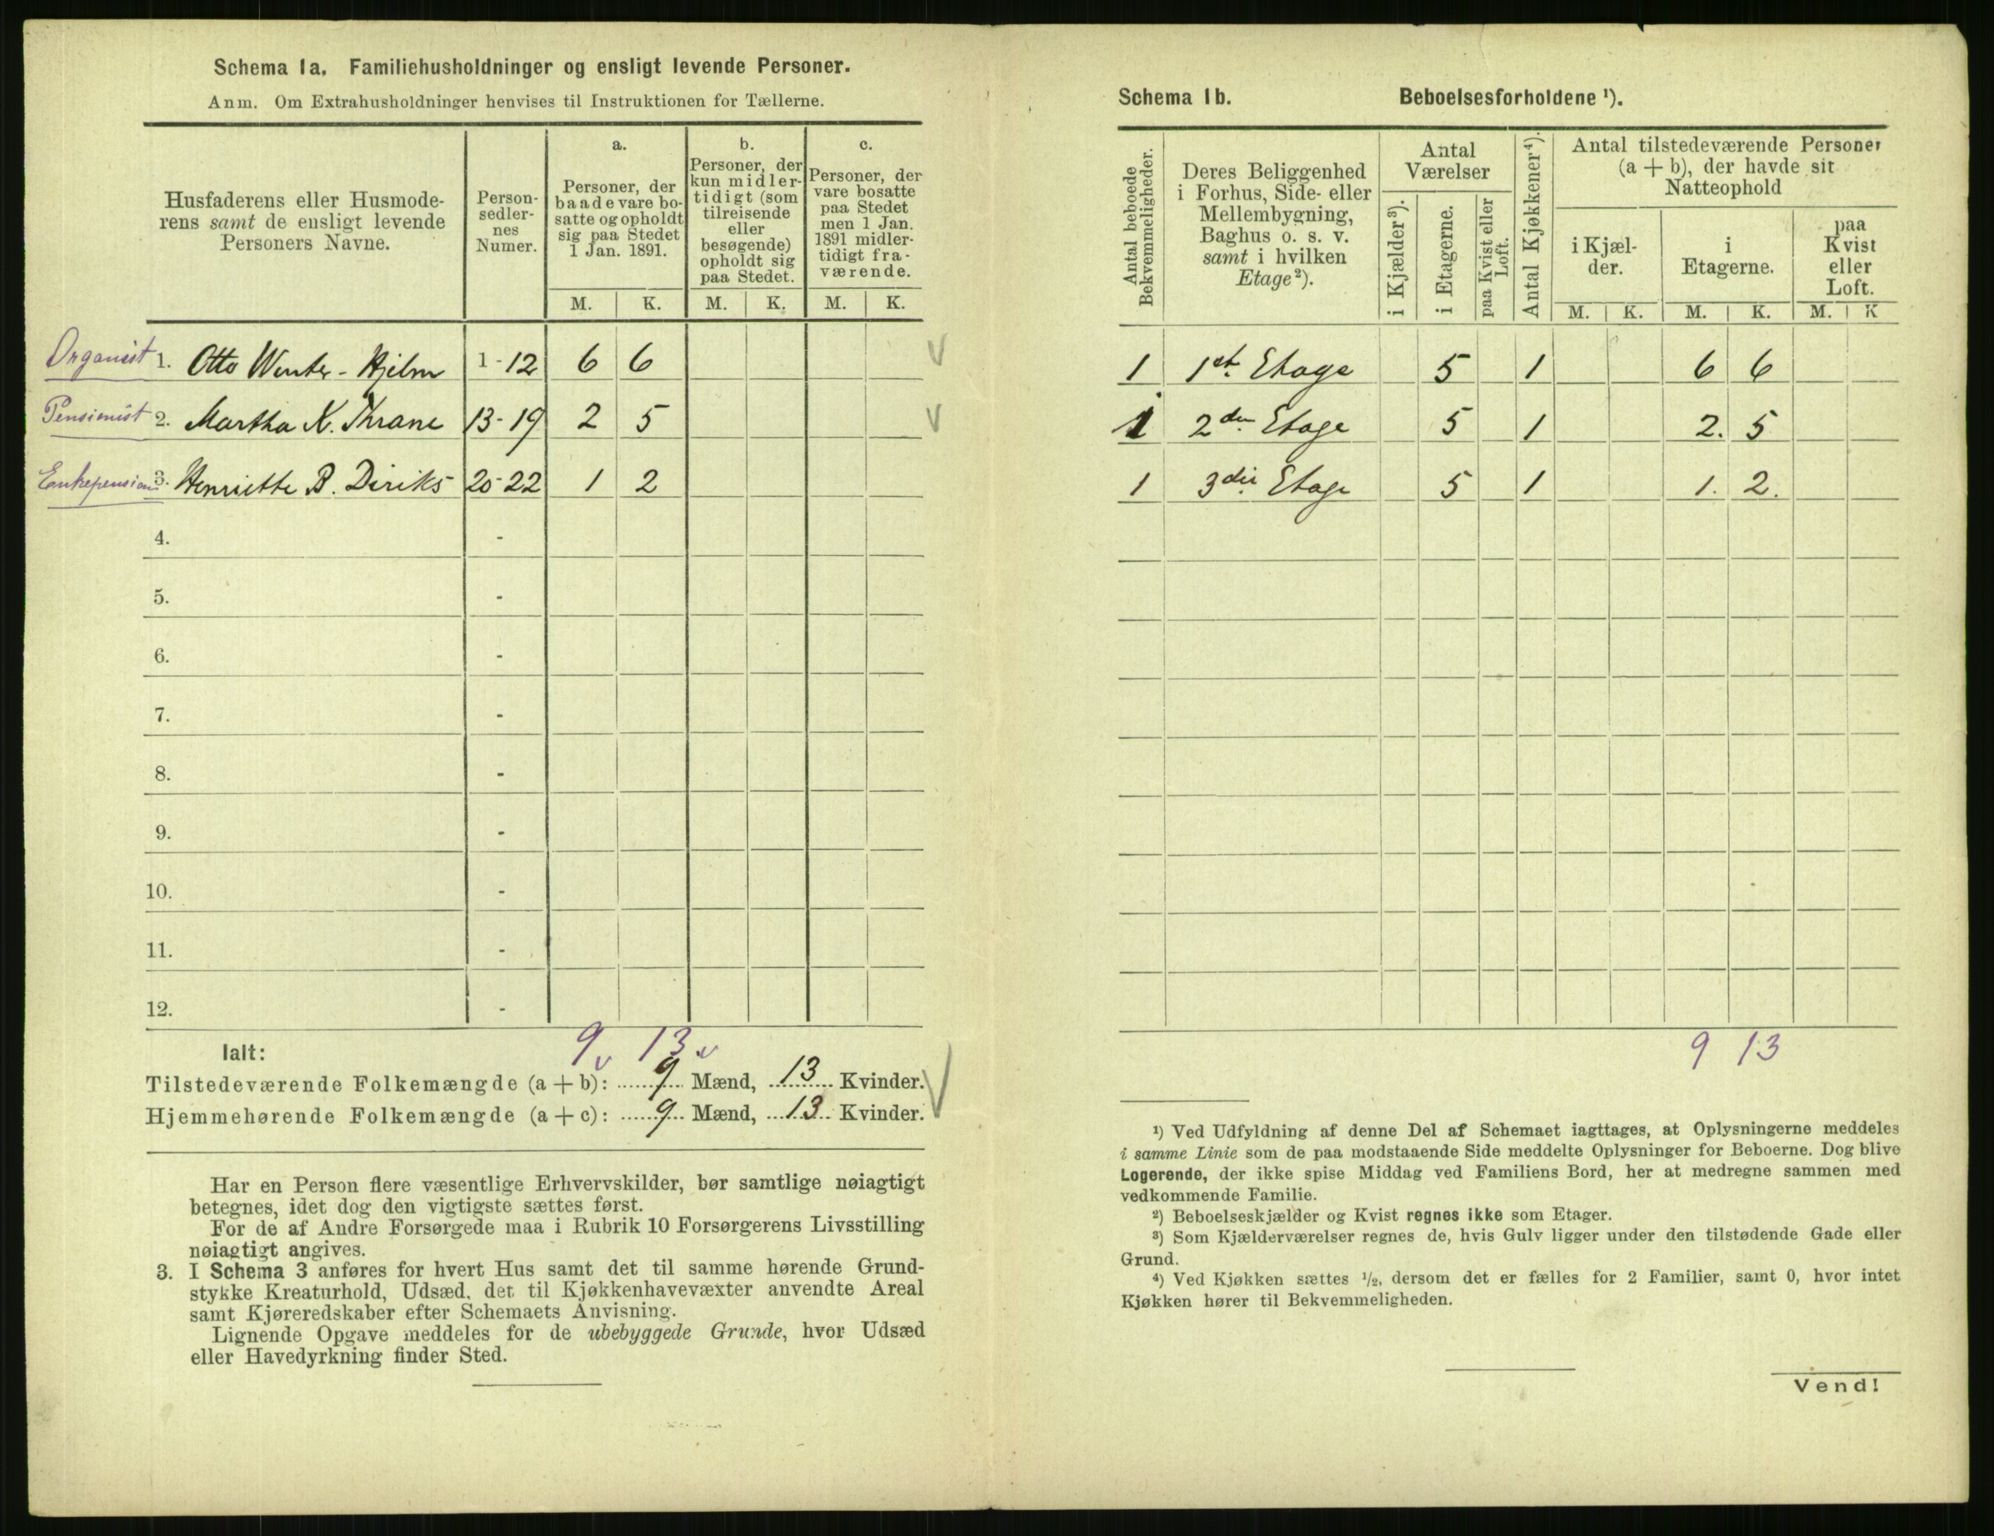 Schema 1a. Familiehusholdninger og ensligt levende Personer.
Anm. Om Extrahusholdninger henvises til Instruktionen for Tællerne.
Husfaderens eller Husmode-
rens samt de ensligt levende
Personers Navne.
Person-
sedler-
nes
Numer.
a.
Personer, der
baade vare bo-
satte og opholdt
sig paa Stedet
1 Jan. 1891.
b.
Personer, der
kun midler-
tidigt (som
tilreisende
eller
besøgende)
opholdt sig
paa Stedet.
c.
Personer, der
vare bosatte
paa Stedet
men 1 Jan.
1891 midler-
tidigt fra-
værende.
M. K. M. K. M. K.
Organist 1. Otto Winter-Hjelm 1-12 6 6
Pensionist 2. Martha N. Thrane 13-19 2 5
Enkepension 3. Henriette B. Diriks 20-22 1 2
4. -
5. -
6. -
7. -
8. -
9. -
10. -
11. -
12. -
9 13
Ialt:
Tilstedeværende Folkemængde (a + b): 9 Mænd, 13 Kvinder.
Hjemmehørende Folkemængde (a + c): 9 Mænd, 13 Kvinder.
Har en Person flere væsentlige Erhvervskilder, bør samtlige nøiagtigt
betegnes, idet dog den vigtigste sættes først.
For de af Andre Forsørgede maa i Rubrik 10 Forsørgerens Livsstilling
nøiagtigt angives.
3. I Schema 3 anføres for hvert Hus samt det til samme hørende Grund-
stykke Kreaturhold, Udsæd, det til Kjøkkenhavevæxter anvendte Areal
samt Kjøreredskaber efter Schemaets Anvisning.
Lignende Opgave meddeles for de ubebyggede Grunde, hvor Udsæd
eller Havedyrkning finder Sted.
Schema 1b. Beboelsesforholdene ¹).
Antal beboede
Bekvemmeligheder.
Deres Beliggenhed
i Forhus, Side- eller
Mellembygning,
Baghus o. s. v.
samt i hvilken
Etage²).
Antal
Værelser
i Kjælder³).
i Etagerne.
paa Kvist eller
Loft.
Antal Kjøkkener⁴).
Antal tilstedeværende Personer
(a + b), der havde sit
Natteophold
i Kjæl-
der.
i
Etagerne.
paa
Kvist
eller
Loft.
M. K. M. K. M. K
1 1st. Etage 5 1 6 6
1 2den Etage 5 1 2. 5
1 3die Etage 5 1 1. 2.
9 13
¹) Ved Udfyldning af denne Del af Schemaet iagttages, at Oplysningerne meddeles
i samme Linie som de paa modstaaende Side meddelte Oplysninger for Beboerne. Dog blive
Logerende, der ikke spise Middag ved Familiens Bord, her at medregne sammen med
vedkommende Familie.
²) Beboelseskjælder og Kvist regnes ikke som Etager.
³) Som Kjælderværelser regnes de, hvis Gulv ligger under den tilstødende Gade eller
Grund.
⁴) Ved Kjøkken sættes ½, dersom det er fælles for 2 Familier, samt 0, hvor intet
Kjøkken hører til Bekvemmeligheden.
Vend!